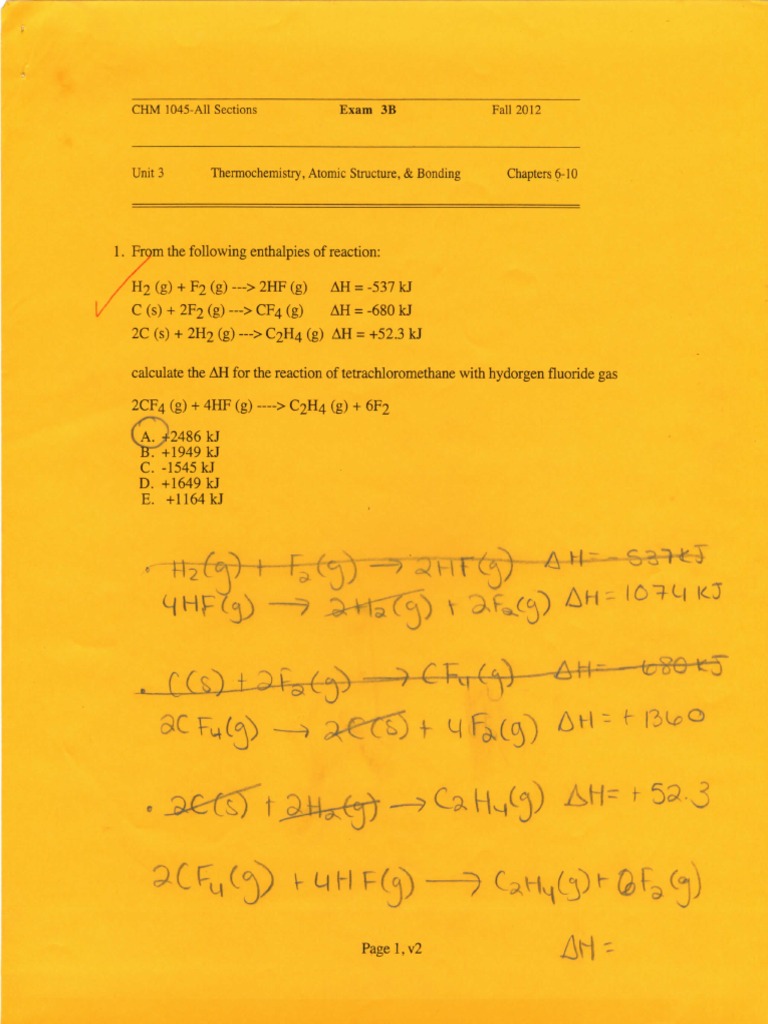 CHM 1045-All Sections Exam 3B Fall 2012
Unit 3 Thermochemistry, Atomic Structure, & Bonding Chapters 6-10
1. From the following enthalpies of reaction:
H2 (g) + F2 (g) ---> 2HF (g) ΔH = -537 kJ
C (s) + 2F2 (g) ---> CF4 (g) ΔH = -680 kJ
2C (s) + 2H2 (g) ---> C2H4 (g) ΔH = +52.3 kJ
calculate the ΔH for the reaction of tetrachloromethane with hydorgen fluoride gas
2CF4 (g) + 4HF (g) ----> C2H4 (g) + 6F2
A. +2486 kJ
B. +1949 kJ
C. -1545 kJ
D. +1649 kJ
E. +1164 kJ
• H2(g) + F2(g) → 2HF(g) ΔH = -537kJ
4HF(g) → 2H2(g) + 2F2(g) ΔH = 1074 KJ
• C(s) + 2F2(g) → CF4(g) ΔH = -680 kJ
2CF4(g) → 2C(s) + 4F2(g) ΔH = + 1360
• 2C(s) + 2H2(g) → C2H4(g) ΔH = + 52.3
2CF4(g) + 4HF(g) → C2H4(g) + 6F2(g)
ΔH =
Page 1, v2